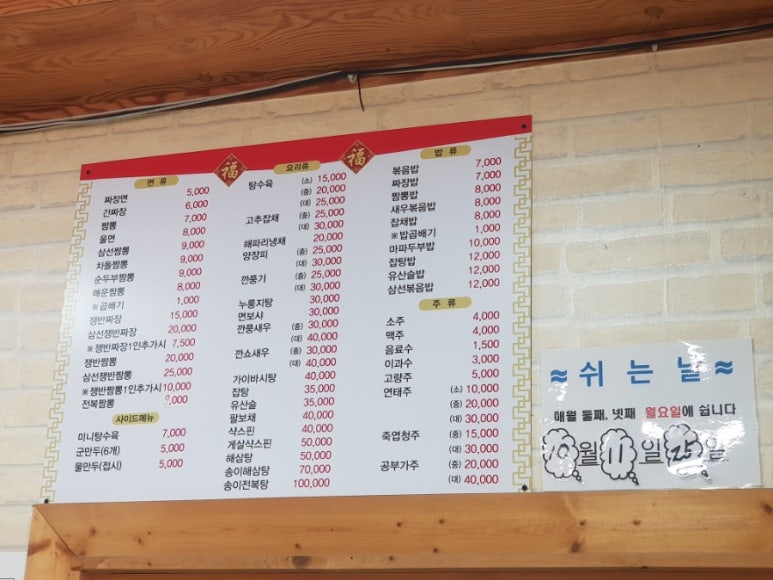 福
福
면 류
짜장면 5,000
간짜장 6,000
짬뽕 7,000
울면 8,000
삼선짬뽕 9,000
차돌짬뽕 9,000
순두부짬뽕 9,000
매운짬뽕 8,000
※곱배기 1,000
쟁반짜장 15,000
삼선쟁반짜장 20,000
※쟁반짜장1인추가시 7,500
쟁반짬뽕 20,000
삼선쟁반짬뽕 25,000
※쟁반짬뽕1인추가시 10,000
전복짬뽕
사이드메뉴
미니탕수육 7,000
군만두(6개) 5,000
물만두(접시) 5,000
요리류
탕수육 (소) 15,000
(중) 20,000
(대) 25,000
고추잡채 (중) 25,000
(대) 30,000
해파리냉채 20,000
양장피 (중) 25,000
(대) 30,000
깐풍기 (중) 25,000
(대) 30,000
누룽지탕 30,000
면보샤 30,000
깐풍새우 (중) 30,000
(대) 40,000
깐쇼새우 (중) 30,000
(대) 40,000
가이바시탕 40,000
잡탕 35,000
유산슬 35,000
팔보채 40,000
샥스핀 40,000
게살샥스핀 50,000
해삼탕 50,000
송이해삼탕 70,000
송이전복탕 100,000
밥 류
볶음밥 7,000
짜장밥 7,000
짬뽕밥 8,000
새우볶음밥 8,000
잡채밥 8,000
※밥곱배기 1,000
마파두부밥 10,000
잡탕밥 12,000
유산슬밥 12,000
삼선볶음밥 12,000
주 류
소주 4,000
맥주 4,000
음료수 1,500
이과수 3,000
고량주 5,000
연태주 (소) 10,000
(중) 20,000
(대) 30,000
죽엽청주 (중) 15,000
(대) 30,000
공부가주 (중) 20,000
(대) 40,000
≈ 쉬 는 날 ≈
매월 둘째, 넷째 월요일에 쉽니다
10월 11일 25일